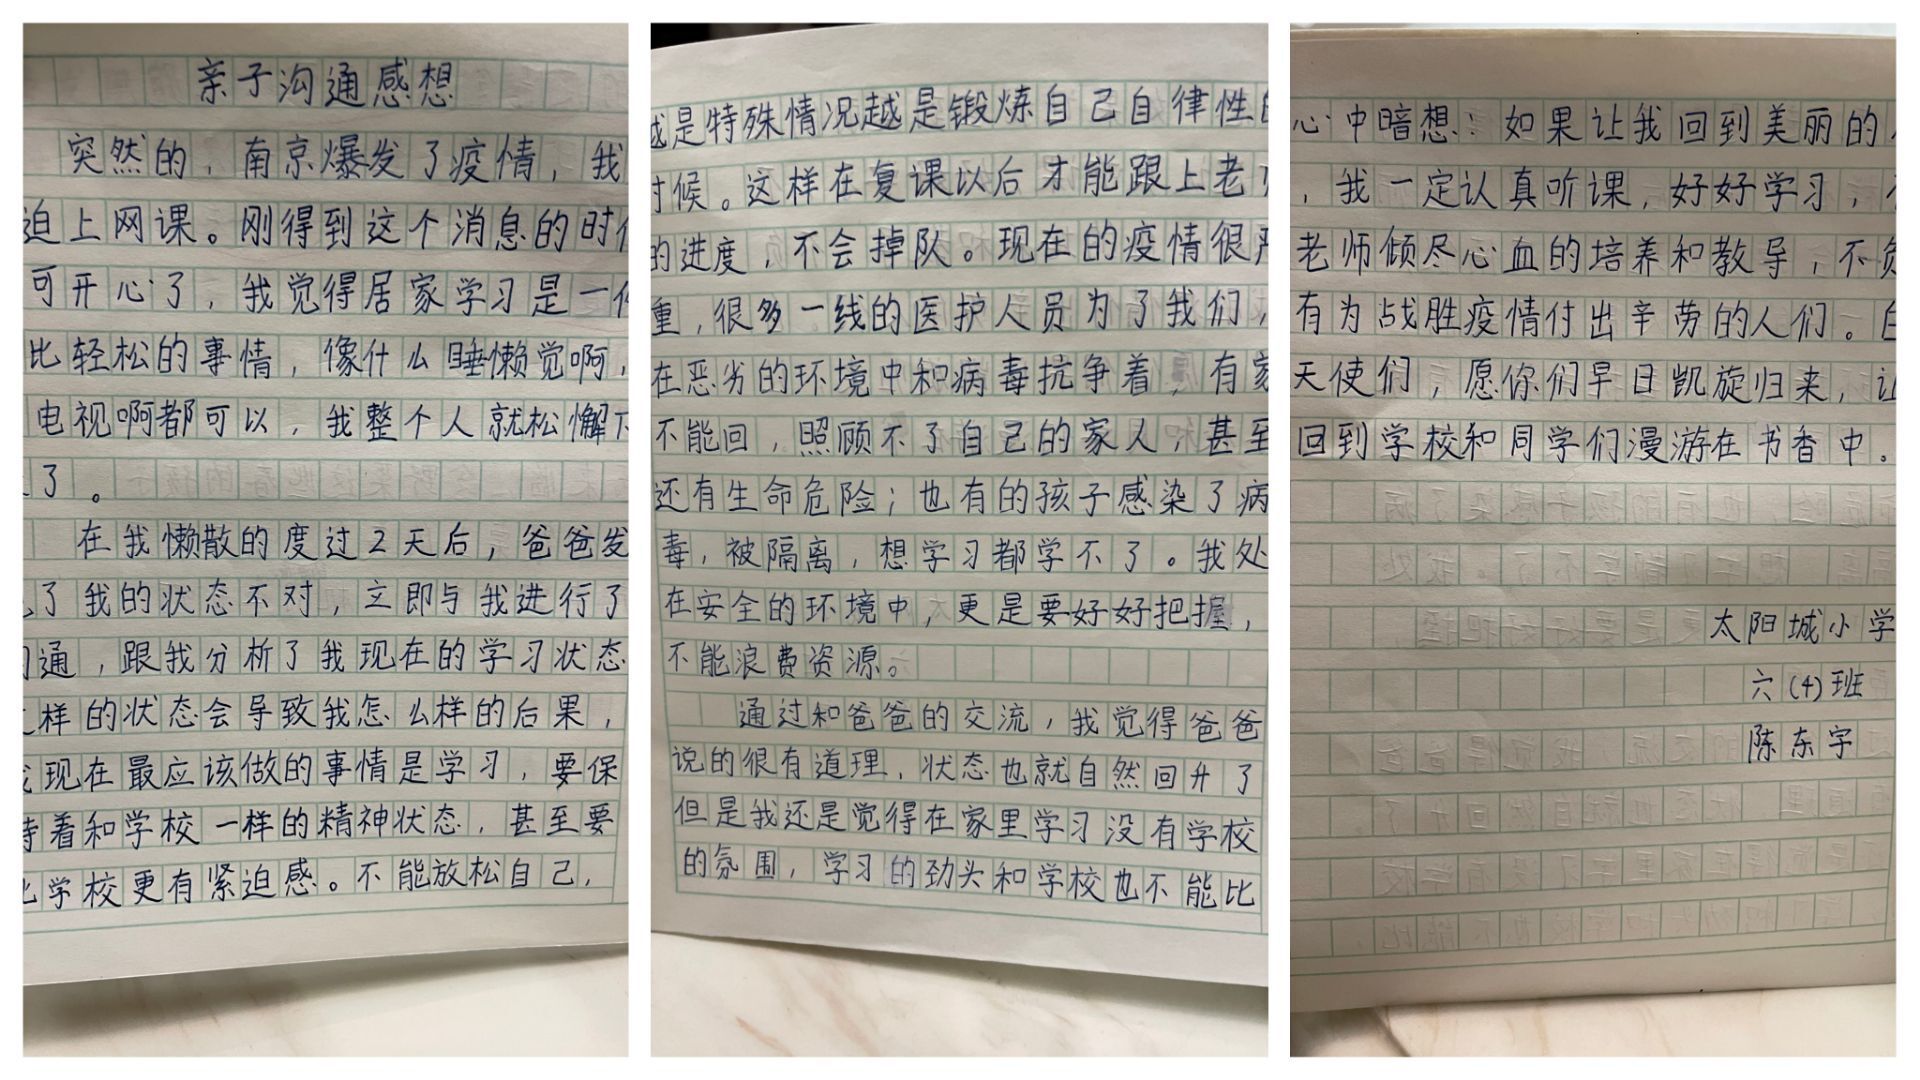 亲子沟通感想
突然的，南京爆发了疫情，我
迫上网课。刚得到这个消息的时
可开心了，我觉得居家学习是一
比轻松的事情，像什么睡懒觉啊，
电视啊都可以，我整个人就松懈下
了。
在我懒散的度过2天后，爸爸发
了我的状态不对，立即与我进行了
通，跟我分析了我现在的学习状态
样的状态会导致我怎么样的后果，
现在最应该做的事情是学习，要保
持着和学校一样的精神状态，甚至要
比学校更有紧迫感。不能放松自己，
越是特殊情况越是锻炼自己自律性的
时候。这样在复课以后才能跟上老
的进度，不会掉队。现在的疫情很严
重，很多一线的医护人员为了我们，
在恶劣的环境中和病毒抗争着，有家
不能回，照顾不了自己的家人，甚至
还有生命危险；也有的孩子感染了病
毒，被隔离，想学习都学不了。我处
在安全的环境中，更是要好好把握，
不能浪费资源。
通过和爸爸的交流，我觉得爸爸
说的很有道理，状态也就自然回升了
但是我还是觉得在家里学习没有学校
的氛围，学习的劲头和学校也不能比
心中暗想：如果让我回到美丽的
，我一定认真听课，好好学习，
老师倾尽心血的培养和教导，不负
有为战胜疫情付出辛劳的人们。白
天使们，愿你们早日凯旋归来，让
回到学校和同学们漫游在书香中。
太阳城小学
六(4)班
陈东宇